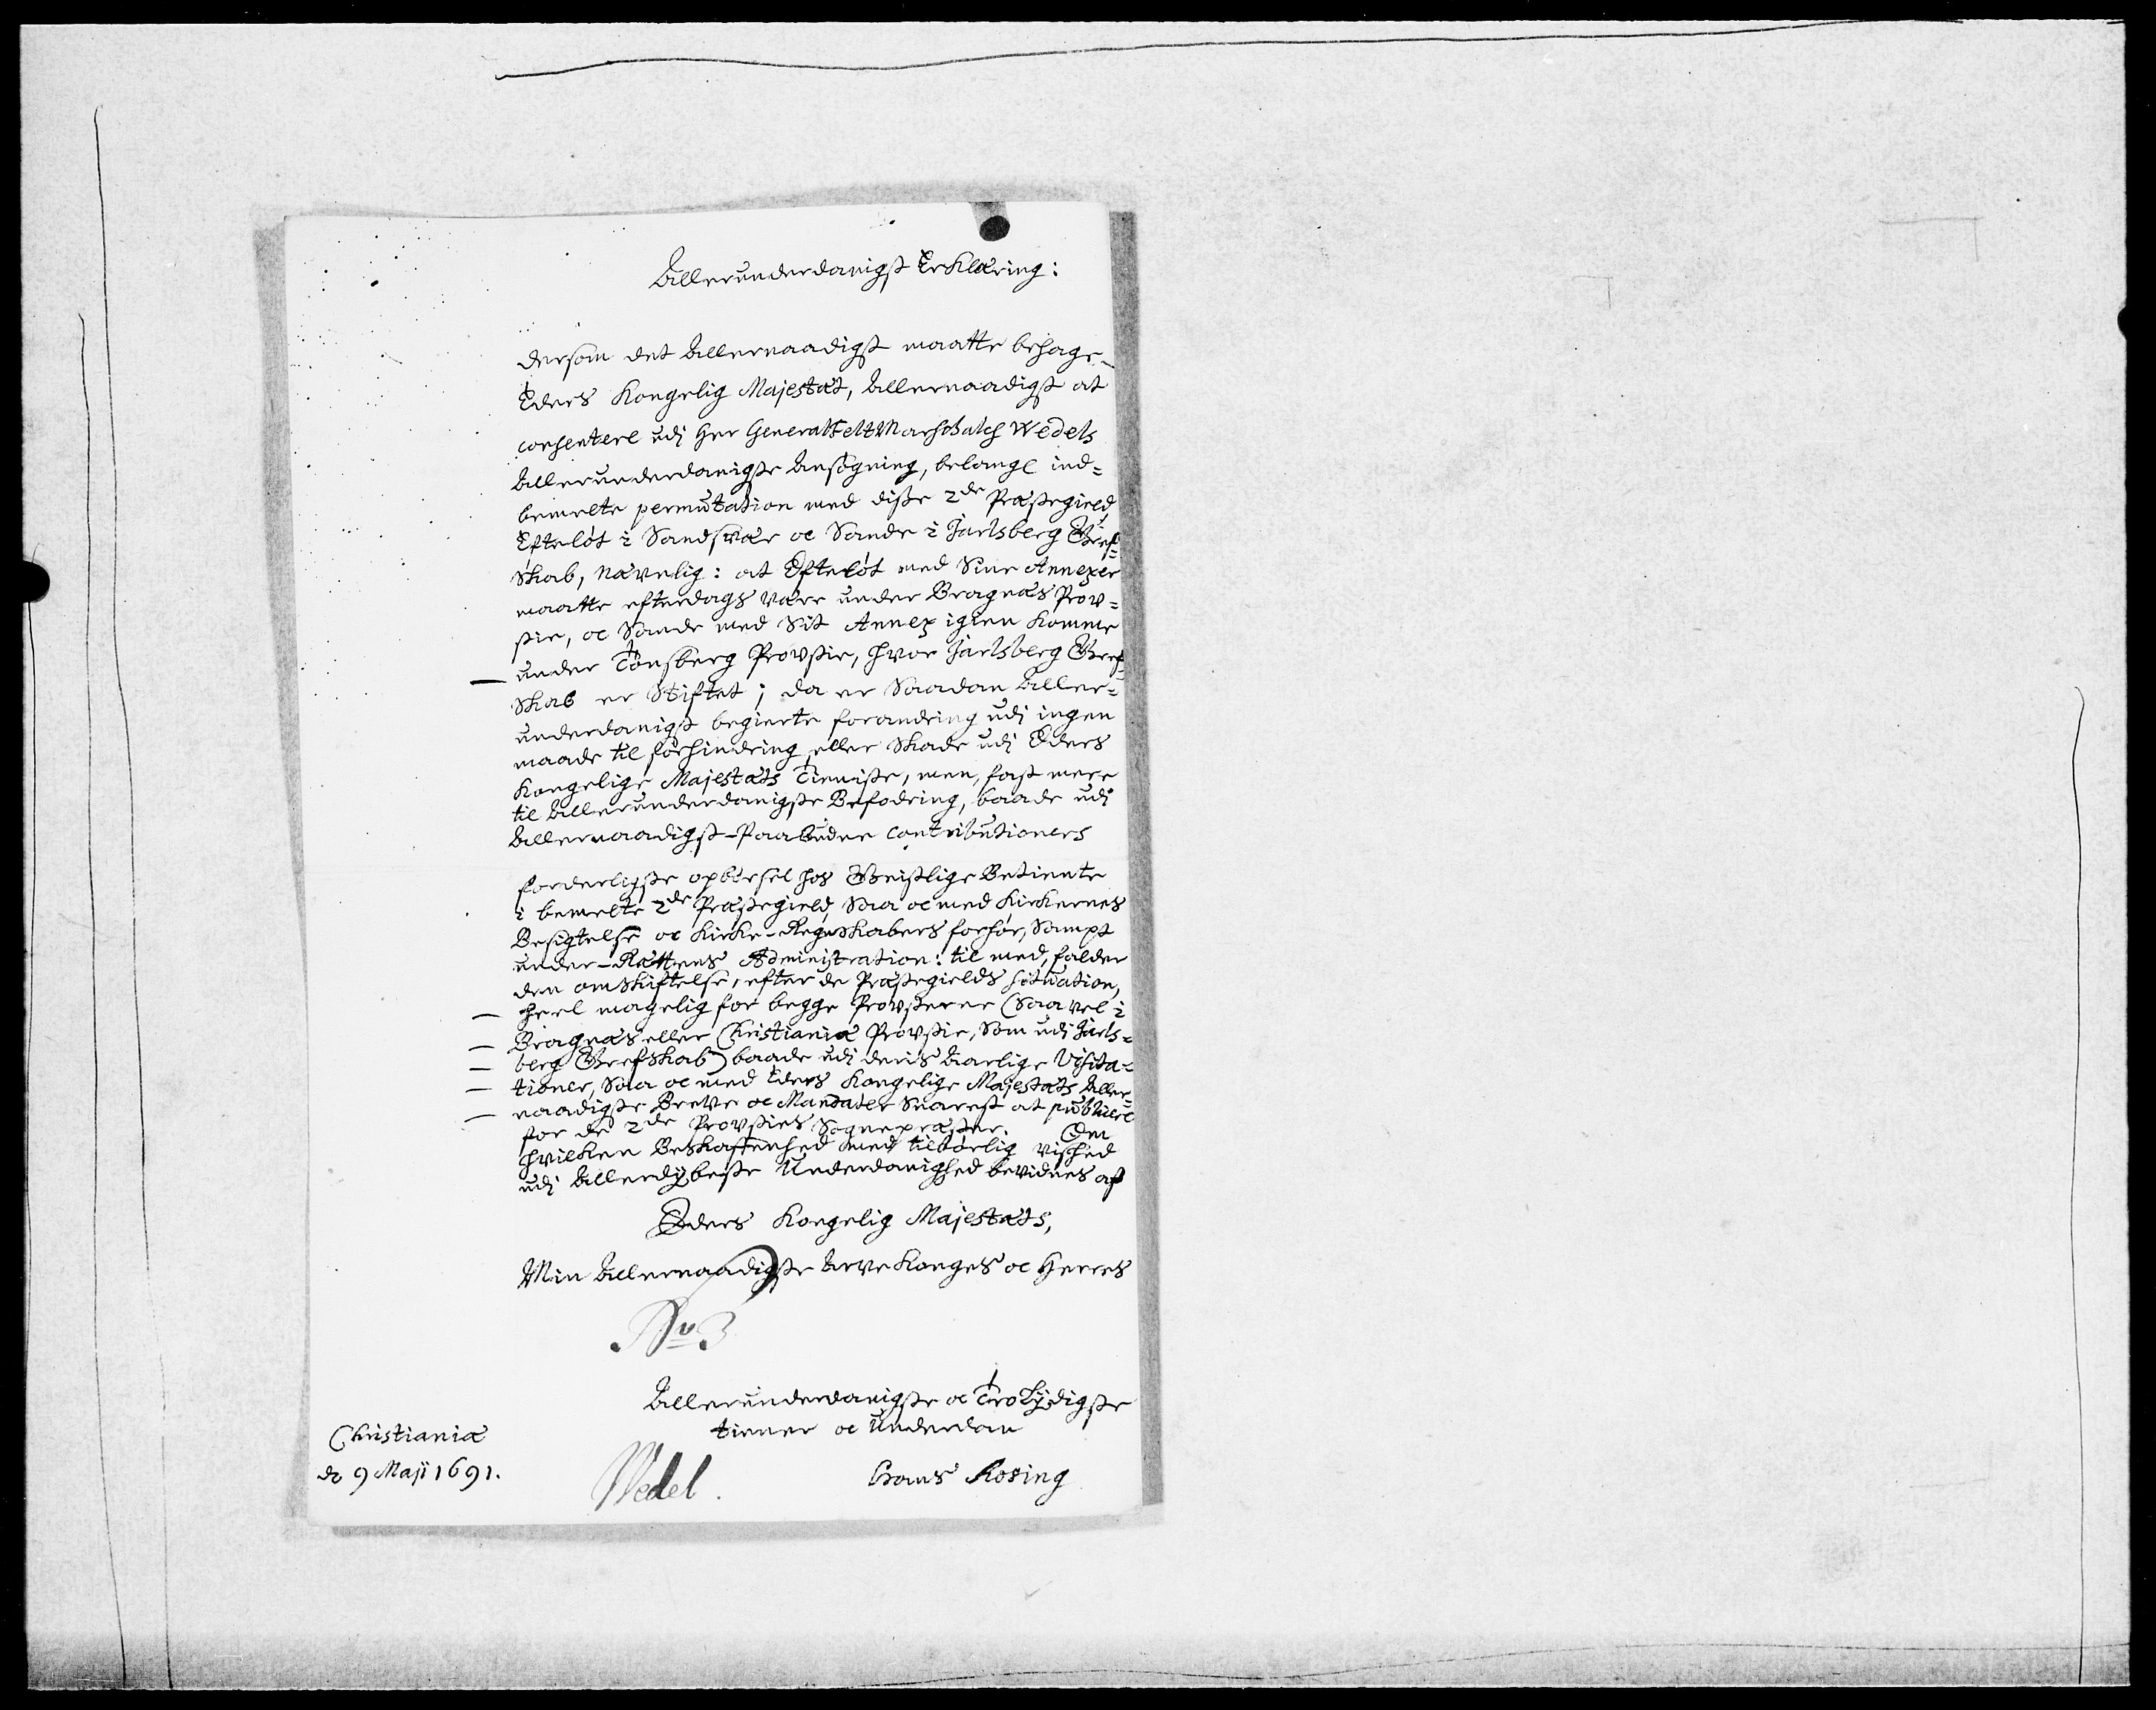 Allerunderdanigst Erklæring:
dersom det Allernaadigst maatte behage
Eders Kongelig Majestæt, Allernaadigst at
consentere udj Her GeneralFeltMarschalch Wedels
Allerunderdanigste Ansøgning, belangl ind=
bemelte permutation med disse 2de Præstegield,
Efteløt i Sandsvær oc Sande i Jarlsberg Gref=
Skab, Nævnlig: at Efteløt med Sine Annexer
maatte efterdags være under Bragnæs Prov=
stie, oc Sande med Sit Annex igien komme
under Tønsberg Provstie, hvor Jarlsberg Gref=
Skab er Stiftet; da er Saadan Aller=
underdanigst begierte forandring udj ingen
maade til forhindring eller Skade udj Eders
Kongelige Majestæts Tieniste, men, fast mere
til Allerunderdanigste Befodring, baade udj
Allernaadigst-Paabudne Contributioners
forderligste opbørsel hos Geistlige Betiente
i bemelte 2de Præstegield, Saa oc med Kirkernes
Besigtelse oc Kirke-Regnskabers forhør, Sampt
under-Rættens Administration: til med, falder
den omskiftelse, efter de Præstegields situation,
heel magelig for begge Provsterne (Saa vel i
Bragnæs eller Christianiæ Provstie, Som udj Jarls=
berg Grefskab) baade udj deris Aarlige Visita=
tioner, Saa oc med Eders Kongelige Majestæts Aller=
naadigste Breve oc Mandater Snarest at publicere
for de 2de Provsties Sognepræster. Om
hvilken Beskaffenhed med tilbørlig vished
udj Allerdybeste Underdanighed bevidnes af
Eders Kongelig Majestæts,
Min Allernaadigste Arve Konges oc Herres
No 3
Allerunderdanigste oc Tro Lydigste
tiener oc Underdan
Christianiæ
de 9 Maji 1691.
Hans Rosing
Wedel.